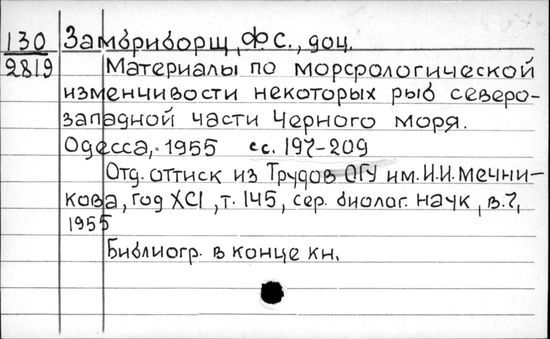 130 Замбриборщ, Ф С., доц.
2819 Материалы по морфологической
изменчивости некоторых рыб северо-
западной части Черного моря.
Одесса, 1955 сс. 197-209
Отд. оттиск из Трудов ОГУ им. И.И. Мечни-
кова, год XCI, т. 145, сер. биолог. наук, в. 7,
1955
Библиогр. в конце кн.